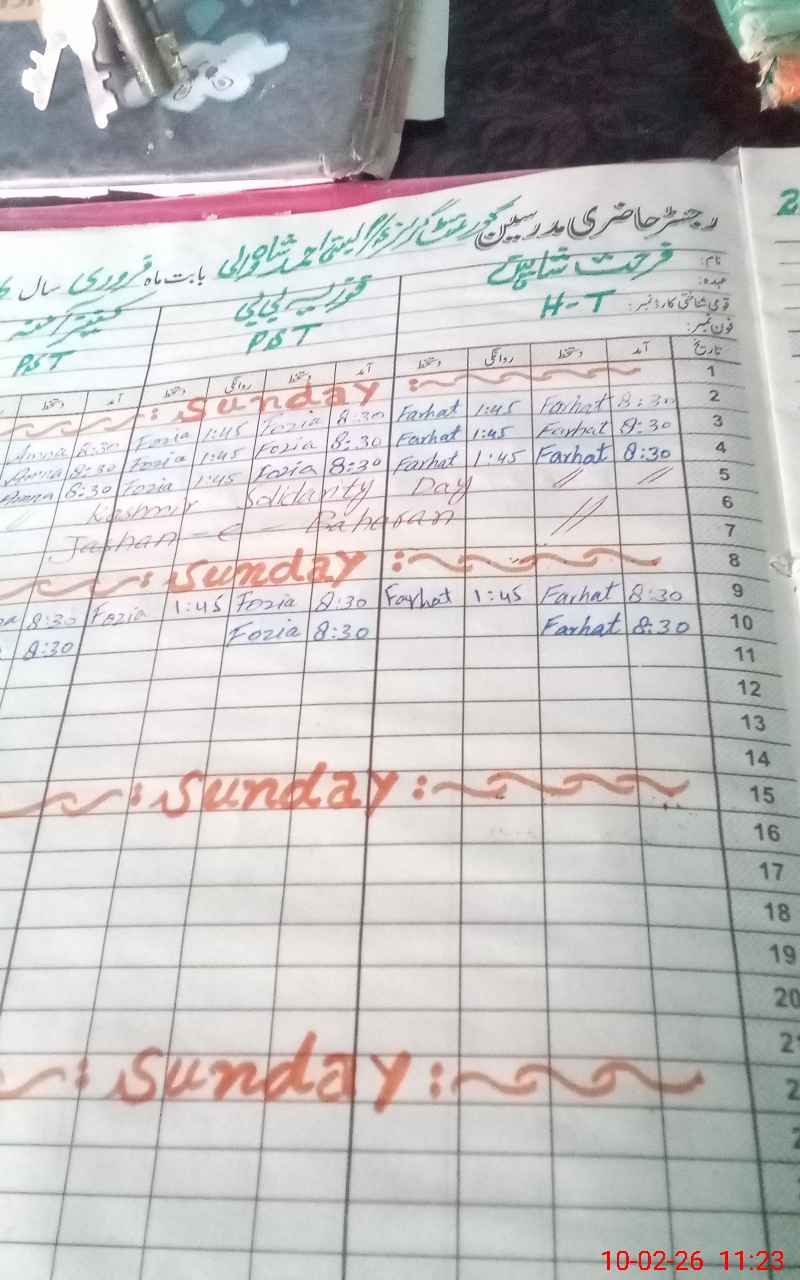 2
رجسٹر حاضری مدرسین گورنمنٹ گرلز
بابت ماہ فروری سال
نام: فرحت
عہدہ: H-T PST PST
قومی شناختی کارڈ نمبر:
فون نمبر:
تاریخ آمد دستخط روانگی دستخط آمد دستخط روانگی دستخط آمد دستخط
1 : Sunday :
2 8:30 Farhat 1:45 Farhat 8:30 Fozia 1:45 Fozia 8:30 Amna
3 8:30 Farhat 1:45 Farhat 8:30 Fozia 1:45 Fozia 8:30 Amna
4 8:30 Farhat 1:45 Farhat 8:30 Fozia 1:45 Fozia 8:30
5 Kashmir Solidarity Day // //
6 Jashan-e- Baharan //
7
8 : Sunday :
9 8:30 Farhat 1:45 Farhat 8:30 Fozia 1:45 Fozia 8:30
10 8:30 Farhat 8:30 Fozia 8:30
11
12
13
14
15 : Sunday :
16
17
18
19
20
: Sunday :
10-02-26 11:23